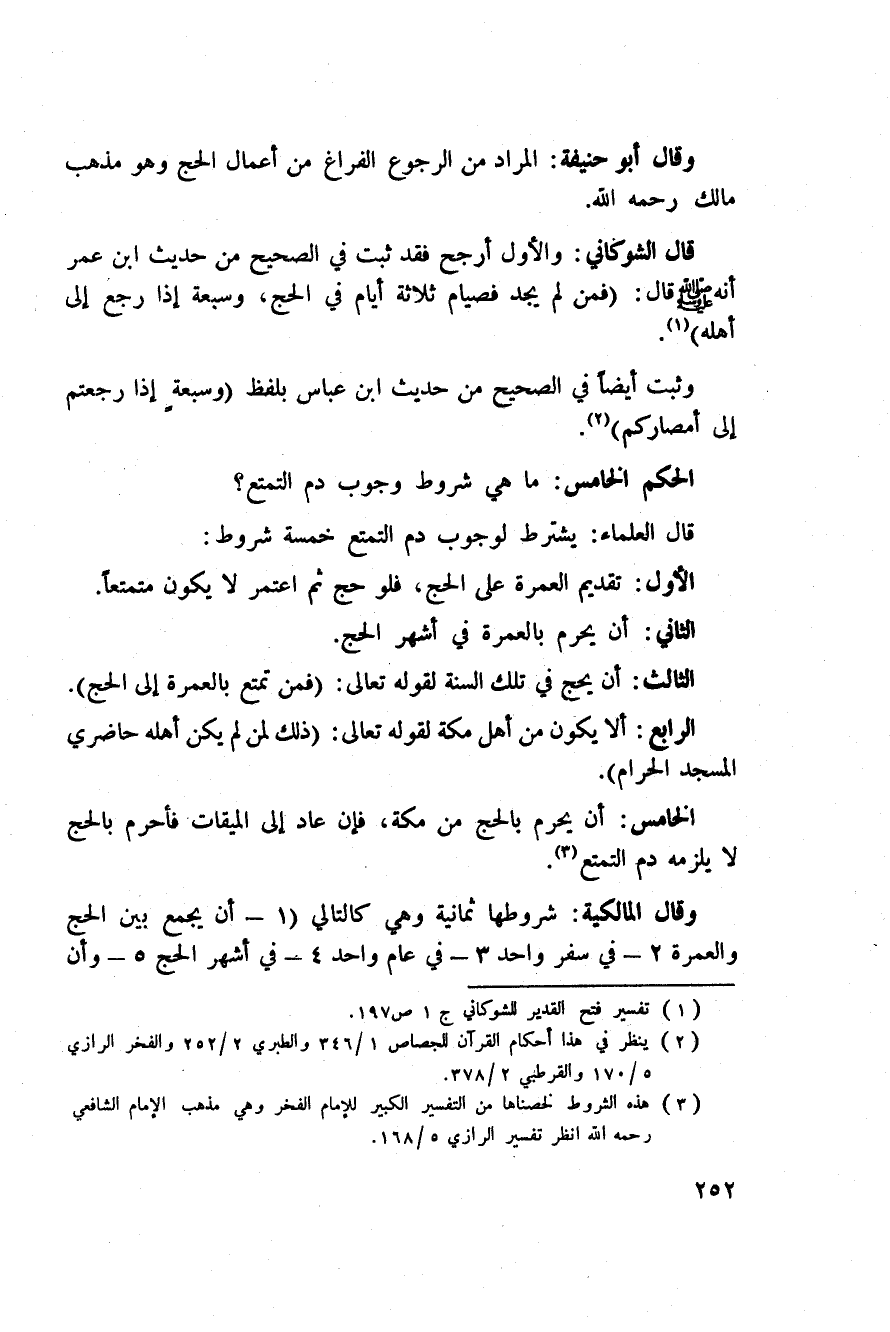 وقال أبو حنيفة: المراد من الرجوع الفراغ من أعمال الحج وهو مذهب
مالك رحمه الله.
قال الشوكاني: والأول أرجح فقد ثبت في الصحيح من حديث ابن عمر
أنه ﷺ قال: (فمن لم يجد فصيام ثلاثة أيام في الحج، وسبعة إذا رجع إلى
أهله)(١).
وثبت أيضاً في الصحيح من حديث ابن عباس بلفظ (وسبعةٍ إذا رجعتم
إلى أمصاركم)(٢).
الحكم الخامس: ما هي شروط وجوب دم التمتع؟
قال العلماء: يشترط لوجوب دم التمتع خمسة شروط:
الأول: تقديم العمرة على الحج، فلو حج ثم اعتمر لا يكون متمتعاً.
الثاني: أن يحرم بالعمرة في أشهر الحج.
الثالث: أن يحج في تلك السنة لقوله تعالى: (فمن تمتع بالعمرة إلى الحج).
الرابع: ألا يكون من أهل مكة لقوله تعالى: (ذلك لمن لم يكن أهله حاضري
المسجد الحرام).
الخامس: أن يحرم بالحج من مكة، فإن عاد إلى الميقات فأحرم بالحج
لا يلزمه دم التمتع(٣).
وقال المالكية: شروطها ثمانية وهي كالتالي (١ – أن يجمع بين الحج
والعمرة ٢ – في سفر واحد ٣ – في عام واحد ٤ – في أشهر الحج ٥ – وأن
(١) تفسير فتح القدير للشوكاني ج ١ ص١٩٧.
(٢) ينظر في هذا أحكام القرآن للجصاص ٣٤٦/١ والطبري ٢٥٢/٢ والفخر الرازي
١٧٠/٥ والقرطبي ٣٧٨/٢.
(٣) هذه الشروط لخصناها من التفسير الكبير للإمام الفخر وهي مذهب الإمام الشافعي
رحمه الله انظر تفسير الرازي ١٦٨/٥.
٢٥٢